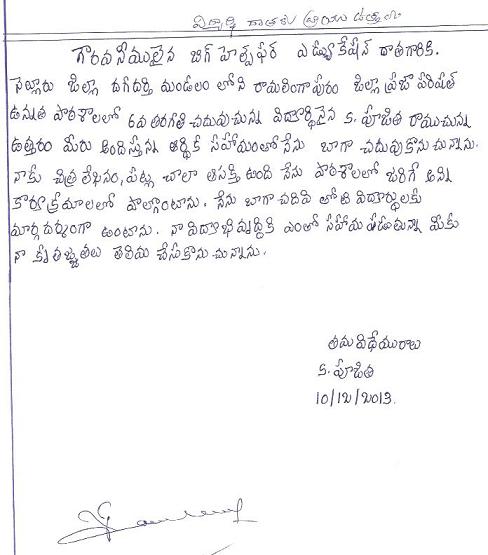 విద్యార్థి దాతకు వ్రాయు ఉత్తరం
గౌరవనీయులైన బిగ్ హెల్ప్ ఫర్ ఎడ్యుకేషన్ దాతగారికి.
నెల్లూరు జిల్లా దగదర్తి మండలం లోని రామలింగాపురం జిల్లా ప్రజా పరిషత్
ఉన్నత పాఠశాలలో 6వ తరగతి చదువుచున్న విద్యార్థినైన క. పూజిత రాయుచున్న
ఉత్తరం మీరు అందిస్తున్న ఆర్థిక సహాయంతో నేను బాగా చదువుకొనుచున్నాను.
నాకు చిత్ర లేఖనం, పట్ల చాలా ఆసక్తి ఉంది నేను పాఠశాలలో జరిగే అన్ని
కార్యక్రమాలలో పాల్గొంటాను. నేను బాగా చదివి తోటి విద్యార్థులకు
మార్గదర్శంగా ఉంటాను. నా విద్యాభివృద్ధికి ఎంతో సహాయ పడుతున్న మీకు
నా కృతజ్ఞతలు తెలియ చేసుకొనుచున్నాను.
తమ విధేయురాలు
క. పూజిత
10/12/2013.